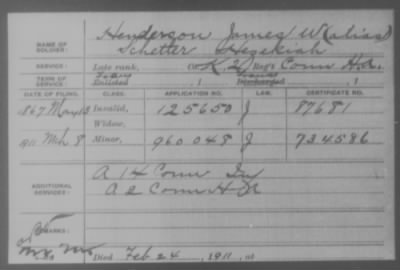 Henderson James W (alias)
NAME OF SOLDIER: Schetter Hezekiah
SERVICE: Late rank, Co. K, 2 Reg't Conn H.A.
TERM OF SERVICE: Enlisted , 1 Discharged , 1
DATE OF FILING. CLASS. APPLICATION NO. LAW. CERTIFICATE NO.
1867 May 13 Invalid, 125650 J 87681
Widow,
1911 Mch 8 Minor, 960 048 J 734586
A 14 Conn Inf
ADDITIONAL SERVICES: A 2 Conn H A
REMARKS:
Died Feb 24, 1911, at